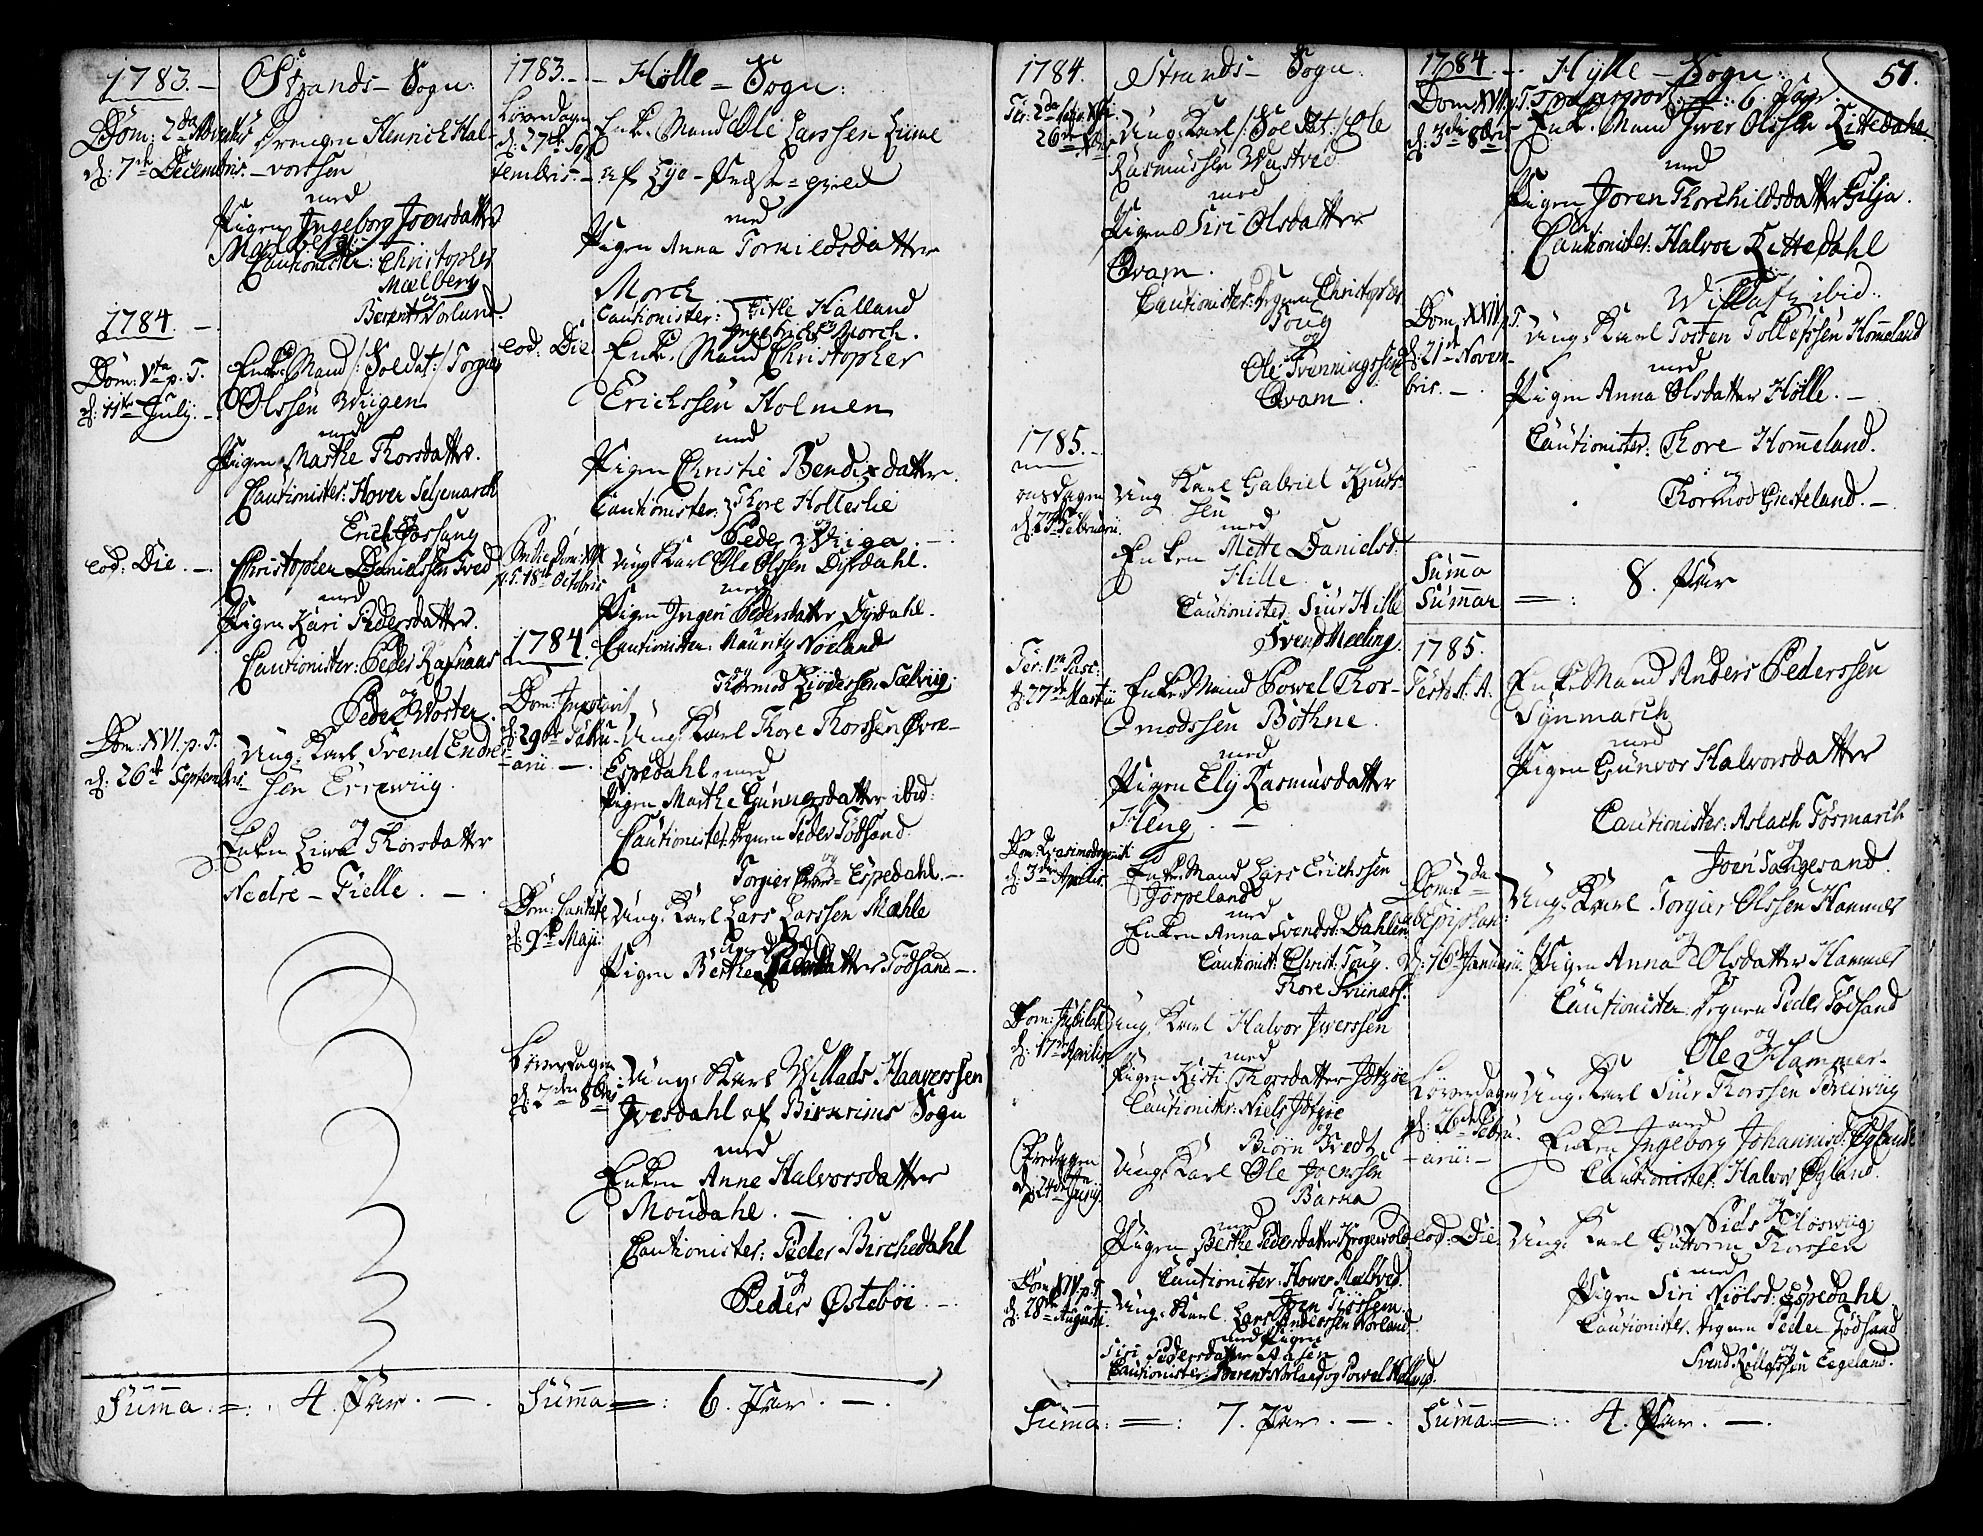 1783. —
Strands – Sogn:
Dom: 2da Adventus
Drengen Hinrich Hal-
d: 7de Decembris. — vorssen
med
Pigen Ingeborg Joensdatter
Mælberg
Cautionister: Christopher
Mælberg
og
Berent Norland
1784. —
Dom: Vta p. T.
d: 11te Julij. —
Enke Mand /: Soldat :/ Torgier
Olssen Wiigen
med
Pigen Marthe Thorsdatter.
Cautionister: Hover Seljemarch
og
Erich Fossang
eod: Die. —
Christopher Danielssen Tved
med
Pigen Kari Pedersdatter.
Cautionister: Peder Ragnaas
og
Peder Woster.
Dom. XVI. p. T.
d: 26de Septembris
Ung Karl Svend Endre-
sen Errewiig.
og
Enken Liva Thorsdatter
Nedre – Tielle. —
Summa. =: 4. Par. —
1783. —
Hølle = Sogn:
Løverdagen
d: 27de Sep-
tembris. —
Enke Mand Ole Larssen Liime
af Lye – Præste = gield
med
Pigen Anna Tormildsdatter
Morch
Cautionister: Gitle Halland
Ingebricht Morch.
eod: Die
Enke Mand Christopher
Erichssen Holmen
med
Pigen Christie Bendixdatter.
Cautionister: Thore Holleslie
og
Peder Wriga. —
d. 18de Octobris
Ung Karl Ole Olssen Dysdahl.
med
Pigen Ingeri Pedersdatter Dysdahl.
Cautionister: Mauritz Nøeland
og
Thormod Siversen Sælviig.
1784.
Dom: Invocavit
d: 29de Febru-
arii. —
Ung Karl Thore Thorssen Øvre-
Espedahl med
Pigen Marthe Gunnersdatter ibid:
Cautionister: Degnen Peder Fossand.
og
Torgier Espedahl. —
Dom: Cantate
d: 9de Maji
Ung Karl Lars Larssen Mæhle
og
Pigen Berthe datter Fossand —.
Løverdagen
d: 2den 8bris
Ung Karl Willads Haaverssen
Ivesdahl af Birkrims Sogn
med
Enken Anne Halvorsdatter
Moudahl. —
Cautionister: Peder Birchedahl
og
Peder Østebøe. —
Summa =: 6. Par. —.
1784.
Strands – Sogn:
26de
Ung Karl /: Soldat :/ Ole
Rasmussen Wastved
med
Pigen Siri Olsdatter
Qvam.
Cautionister: Degnen Christopher
Toug
og
Ole Svenningssen
Qvam.
1785. —
onsdagen
d: 23de Februarii
Ung Karl Gabriel Knuds-
sen
med
Enken Mette Danielsd:
Hille.
Cautionister: Siur Hille
Svend Meeling.
Fer: 1ma Pasc:
d: 27de Martii
Enke Mand Powel Thor-
modssen Bøthne.
med
Pigen Elij Rasmusdatter
Heng. —
Dom: Quasimodogeniti
d: 3de Aprilis
Enke Mand Lars Erichssen
Jørpeland
med
Enken Anna Svendsd: Dahlen
Cautionist: Christ: Toug.
Thore
Dom: Jubilate
d: 17de Aprilis
Ung Karl Halvor Iwerssen
med
Pigen Kisti Thorsdatter Idtzøe
Cautionister: Niels Idtzøe
og
Biørn Tvedt
d: 24de Junij
Ung Karl Ole Joenssen
Barka
med
Pigen Berthe Pedersdatter Krogevold
Cautionister: Hover Mælved.
Joen Tiøssem.
Dom. XIV. p. T.
d: 28de Augusti
Ung Karl Lars Anderssen Norland
med Pigen
Siri Pedersdatter
Cautionister: Berent Norland og Powel
Summa: =: 7. Par. —.
1784 —.
Hølle – Sogn:
51.
Transport =: 6. Par.
Dom: XVII p. T.
d: 3die 8bris
Enke Mand Iwer Olssen Kittedahl
med
Pigen Joren Thorchildsdatter Lilja.
Cautionister: Halvor Kittedahl
Willatz ibid:.
Dom. XXIV p. T.
d: 21de Novem-
bris. —.
Ung Karl Tosten Tollefssen Homeland
med
Pigen Anna Olsdatter Hølle. —
Cautionister: Thore Homeland.
og
Thormod Giesteland. —
Summa
Summar =: 8. Par
1785.
Festo A. A.
Enke Mand Anders Pederssen
Synmarch
med
Pigen Gunvor Halvorsdatter
Cautionister: Aslach Fosmarch
og
Joen Saugesand.
Dom: 2da
ab Epiphan:
d: 16de Januarii
Ung Karl Torgier Olssen Hammer
og
Pigen Anna Olsdatter Hammer
Cautionister: Degnen Peder Fossand
og
Ole Hammer.
Løverdagen
d: 26de Febru-
arii: —
Ung Karl Siur Thorssen Breiwiig
med
Enken Ingeborg Johannisd: Øgland
Cautionister: Halvor Øgland.
og
Niels Kloswiig
eod: Die.
Ung Karl Guttorm Thorssen
med
Pigen Siri Niølsd: Espedahl
Cautionister: Degnen Peder Fossand
og
Svend Rollefssen Eegeland.
Summa =: 4. Par. —.